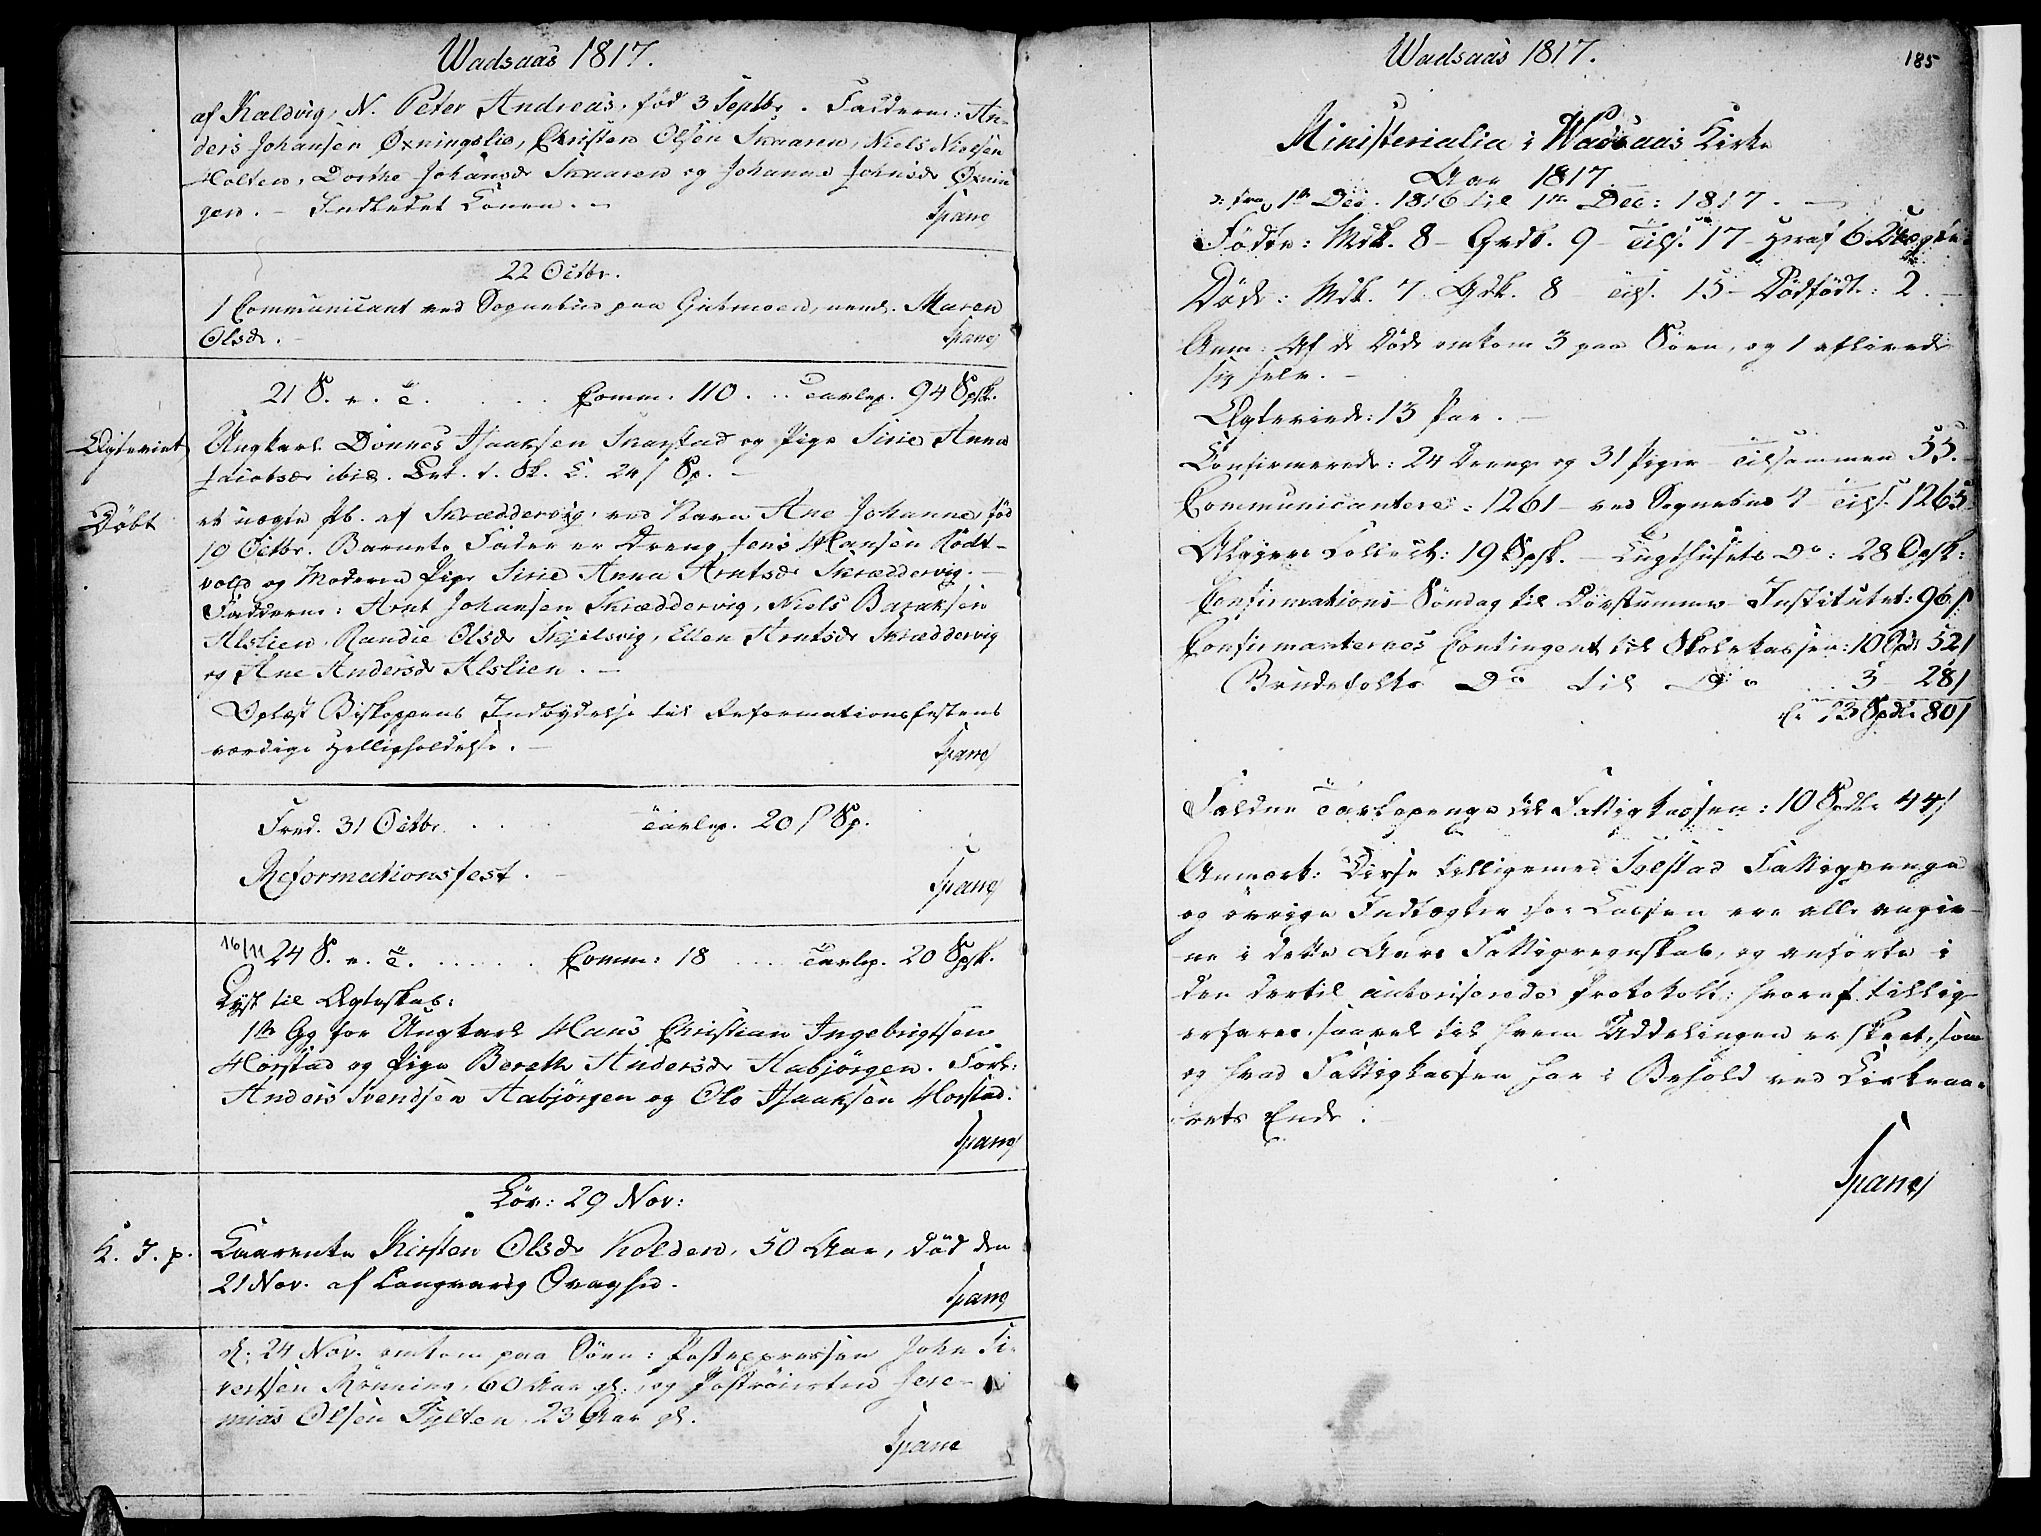 Wadsaas 1817.
af Kaldvig, N. Peter Andreas, fød 3 Septbr. Fadderne: An-
ders Johansen Øxningslie, Christen Olsen Skaaren, Niels Nielsen
Holten, Dorthe Johansdr Skaaren og Johanna Johnsdr Øxnin
gen. - Indledet Konen. -
Spang
22 Octbr.
1 Communicant ved Sognebud paa Grytmoen, nemlig Maren
Olsdr. -
Spang
21 S. e. T. . . . . Comm. 110 . . . Tavlep. 94 Spsk.
Ægteviet
Ungkarl Dønnes Isaaksen Skarstad og Pige Siric Anna
Jacobsdr ibid. Brt. t. Sk. C. 24 s Sp. -
Døbt
et uægte Pb. af Skræddervig, ved Navn Ane Johanna, fød
19 Octbr. Barnets Fader er Dreng Jens Hansen Rødt-
vold og Moderen Pige Siric Anna Arntsdr Skræddervig. -
Fadderne: Arnt Johansen Skræddervig, Niels Baraksen
Alslien, Randie Olsdr Skjelsvig, Ellen Arntsdr Skræddervig
og Ane Andersdr Alslien. -
Oplæst Biskoppens Indbydelse til Reformationsfestens
værdige Helligholdelse. -
Spang
Fred. 31 Octbr. . . . . Tavlep. 20 s Sp.
Reformationsfest. -
Spang
16/11 24 S. e. T. . . . . . Comm: 18 . . . Tavlep. 20 Spsk.
Lyst til Ægteskab:
1ste Gg for Ungkarl Hans Christian Ingebrigtsen
Horstad og Pige Bereth Andersdr Aabjørgen. Forl:
Anders Svendsen Aabjørgen og Ole Isaaksen Horstad.
Spang
Løv: 29 Nov:
K. J. p.
Kaarenke Kirsten Olsdr Holden, 50 Aar, død den
21 Nov. af Langvarig Svaghed.
Spang
d: 24 Nov. omkom paa Søen: Postexpressen John Si-
vertsen Rønning, 60 Aar gl., og Postrøieren Jere-
mias Olsen Tylten, 23 Aar gl.
Spang
Wadsaas 1817.
185
Ministerialia i Wadsaas Kirke
Aar 1817
ɔ: fra 1ste Dec. 1816 til 1ste Dec: 1817. -
Fødte: Mdk. 8 - Qvdk. 9 - Tils. 17 - Heraf 6 Uægte
Døde: Mdk. 7. Qdk. 8 - Tils. 15 - Dødfødte: 2. -
Anm: Af de Døde omkom 3 paa Søen, og 1 aflivede
sig selv. -
Ægteviede: 13 Par. -
Confirmerede: 24 Drenge og 31 Piger - Tilsammen 55. -
Communicantere: 1261 - ved Sognebud 4 - Tils. 1265.
Alexiers Collect: 19 Spsk. - Tugthusets Do: 28 Spsk:
Confirmations Søndag til Døvstumme Institutet: 96 s
Confirmanternes Contingent til Skolekassen: 10 Spdl 52 s
Brudefolks Do til Do . . 3 28 s
er 13 Spdlr 80 s
Faldne Tavlepenge til Fattigkassen: 10 Spdlr 44 s
Anmærk: Disse tilligemed Tølstad Fattigpenge
og øvrige Indtægter for Kassen ere alle angiv-
ne i dette Aars Fattigregnskab, og anførte i
den dertil autoriserede Protokoll; hvoraf tillige
erfares, saavel til hvem Uddelingen er skeet, som
og hvad Fattigkassen har i Behold ved Kirkeaa-
rets Ende. -
Spang